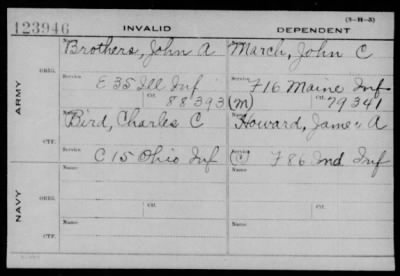 (3-H-3)
123946 INVALID DEPENDENT
ARMY
ORIG.
Name Brothers, John A March, John C
Service E 35 Ill Inf F 16 Maine Inf
Ctf. 88393 (M) Ctf. 79341
CTF.
Name Bird, Charles C Howard, James A
Service C 15 Ohio Inf Service (C) F 86 Ind Inf
NAVY
ORIG.
Name Name
Ctf. Ctf.
CTF.
Name Name